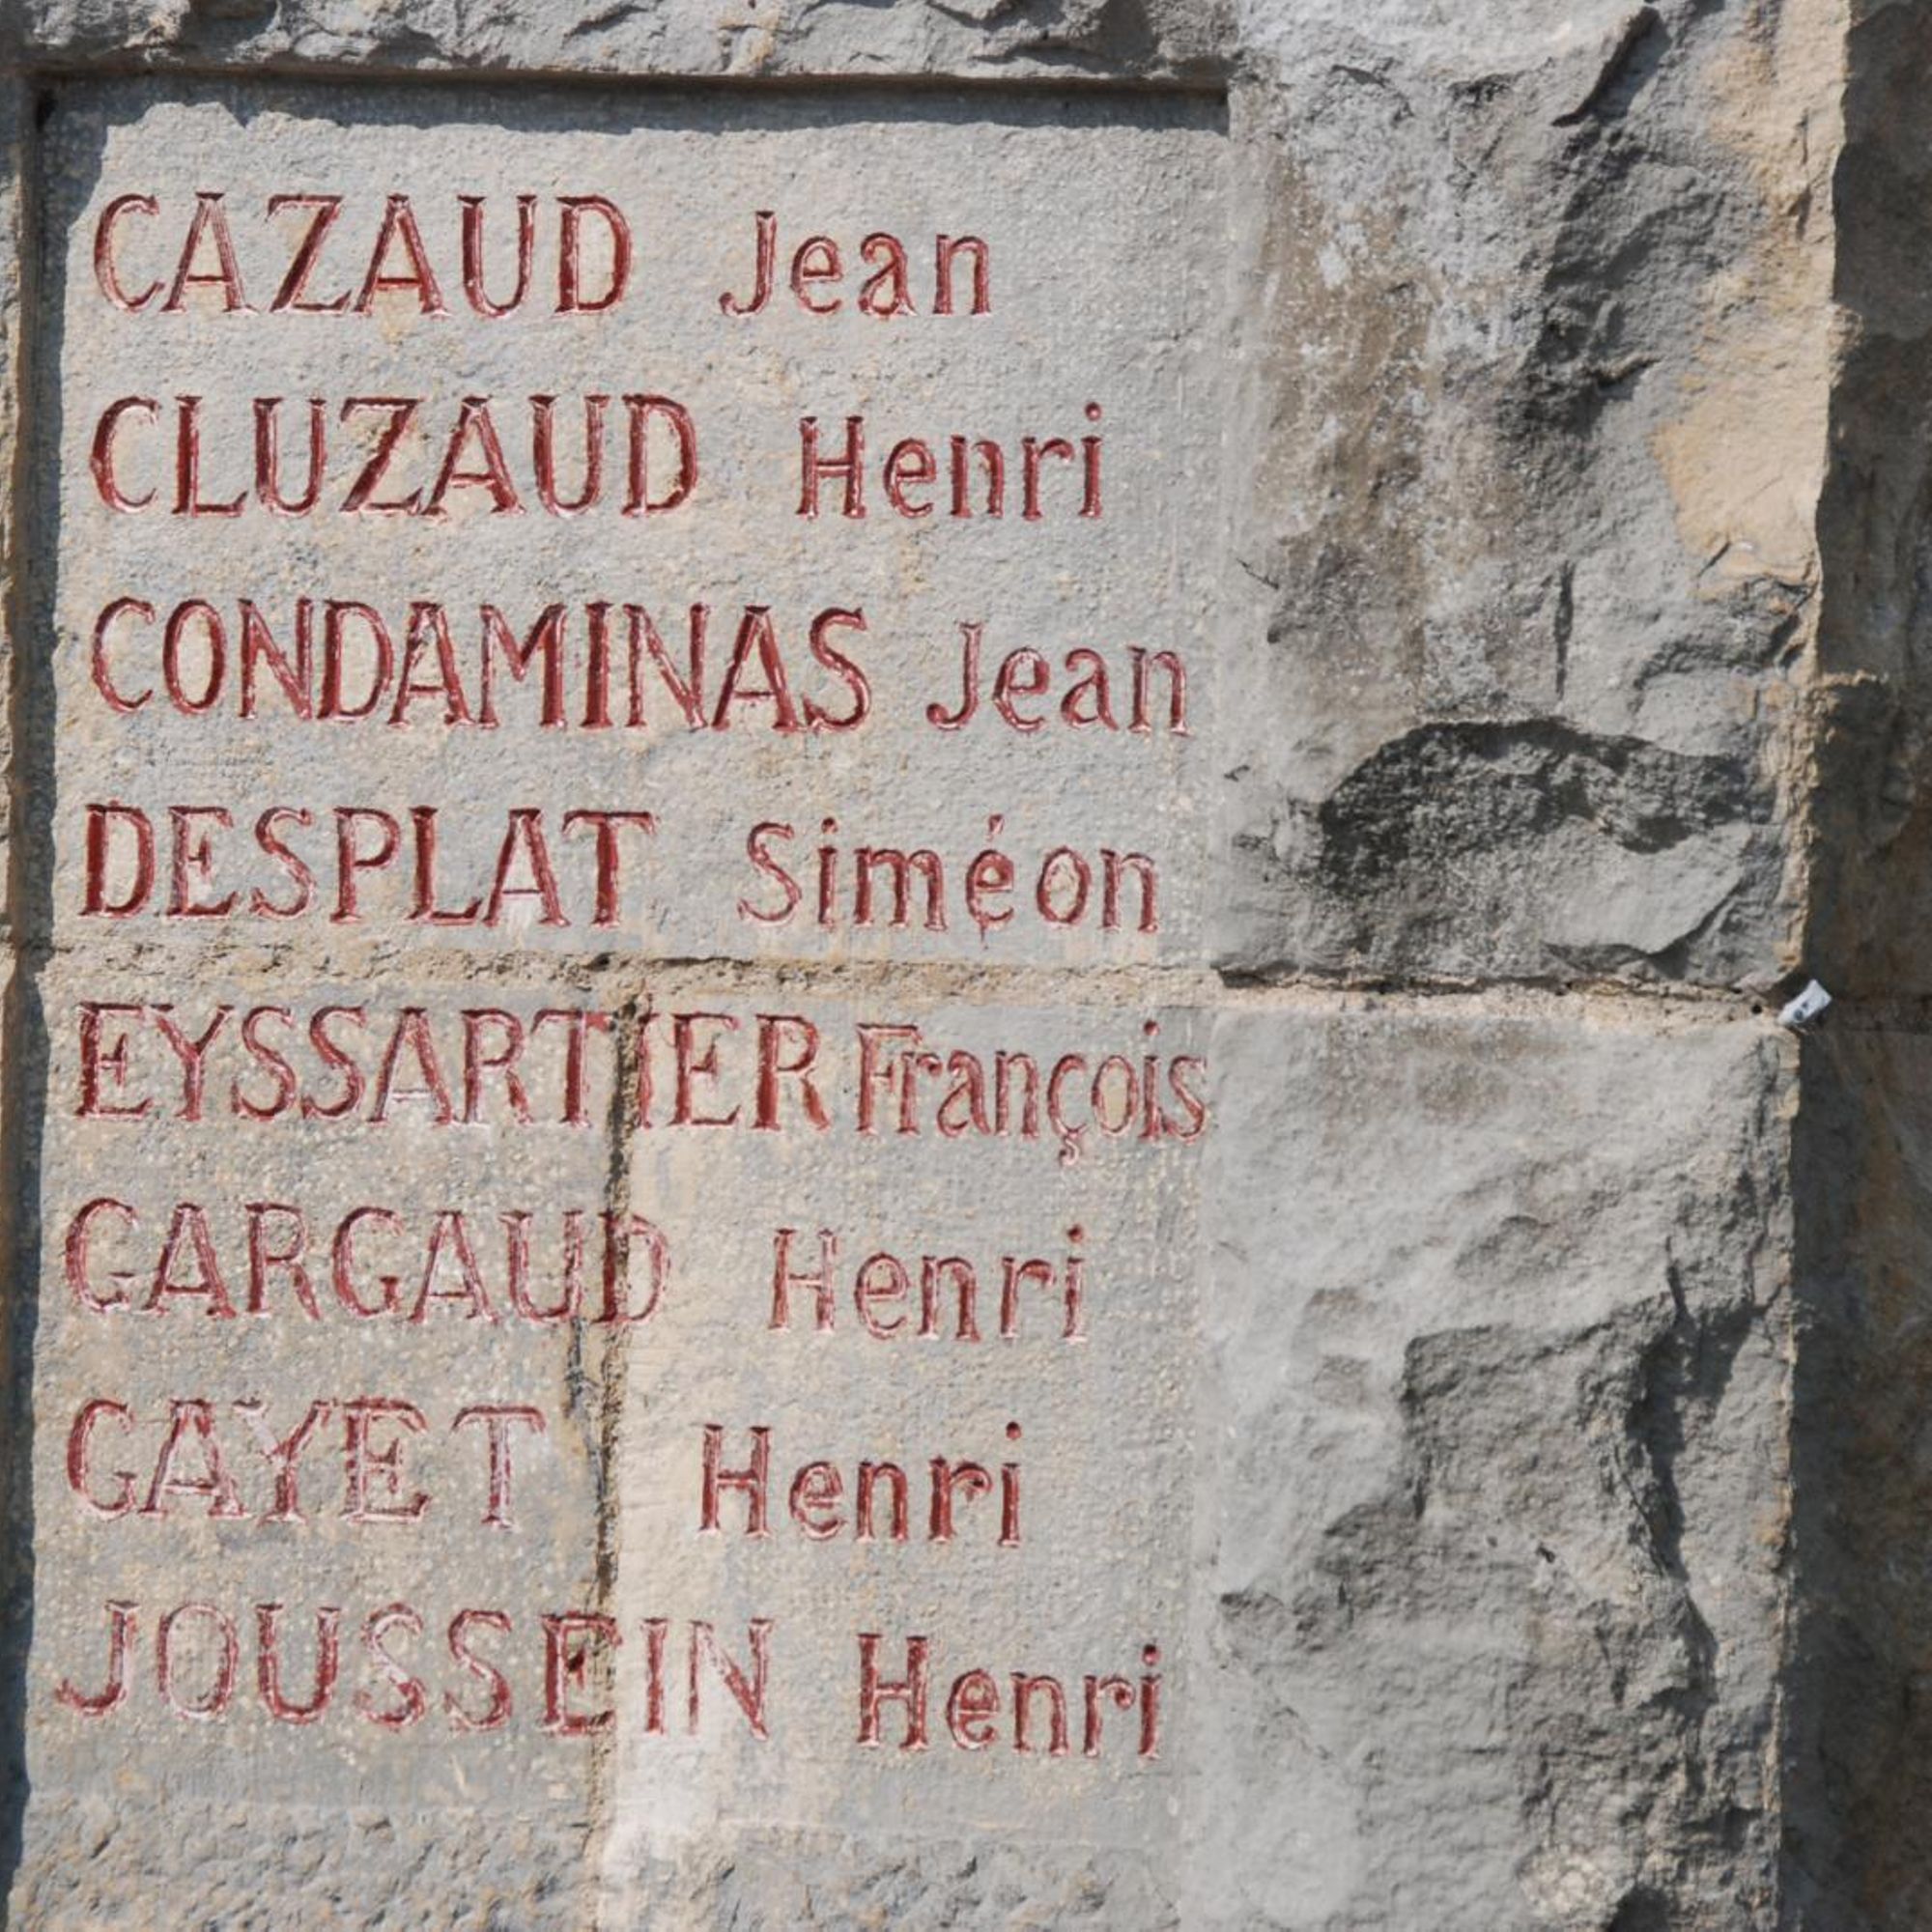 CAZAUD Jean
CLUZAUD Henri
CONDAMINAS Jean
DESPLAT Siméon
EYSSARTIER François
GARGAUD Henri
GAYET Henri
JOUSSEIN Henri